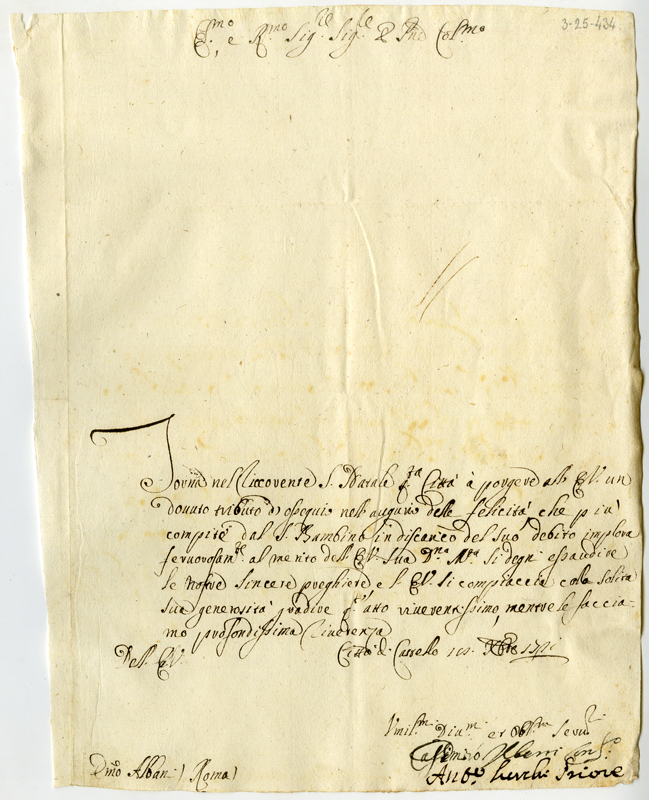 3-25-434
E.mo, e R.mo Sig.re Sig.re P.rone Col.mo
Torna nel ricorrente S. Natale q.ta Città à porgere all' E.V. un
dovuto tributo d'ossequi nell' augurio delle felicità che più
compite dal S. Bambino in discarico del suo debito implora
fervorosam.te al merito dell' E.V. Sua D.na M.tà si degni essaudire
le nostre sincere preghiere e l' E.V. si compiaccia colla solita
sua generosità gradire q.o atto riverentissimo, mentre le faccia-
mo profondissima riverenza
Dell' E.V. Città di Castello 18 Xbre
Umil.mi Div.mi et Obl.mi Serv.ri
Alban) Roma)
Priore